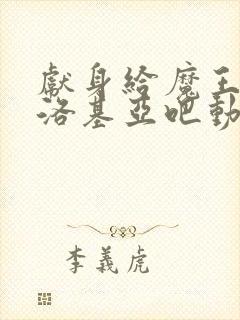 獻身給魔王
洛基亞吧動
李義虎